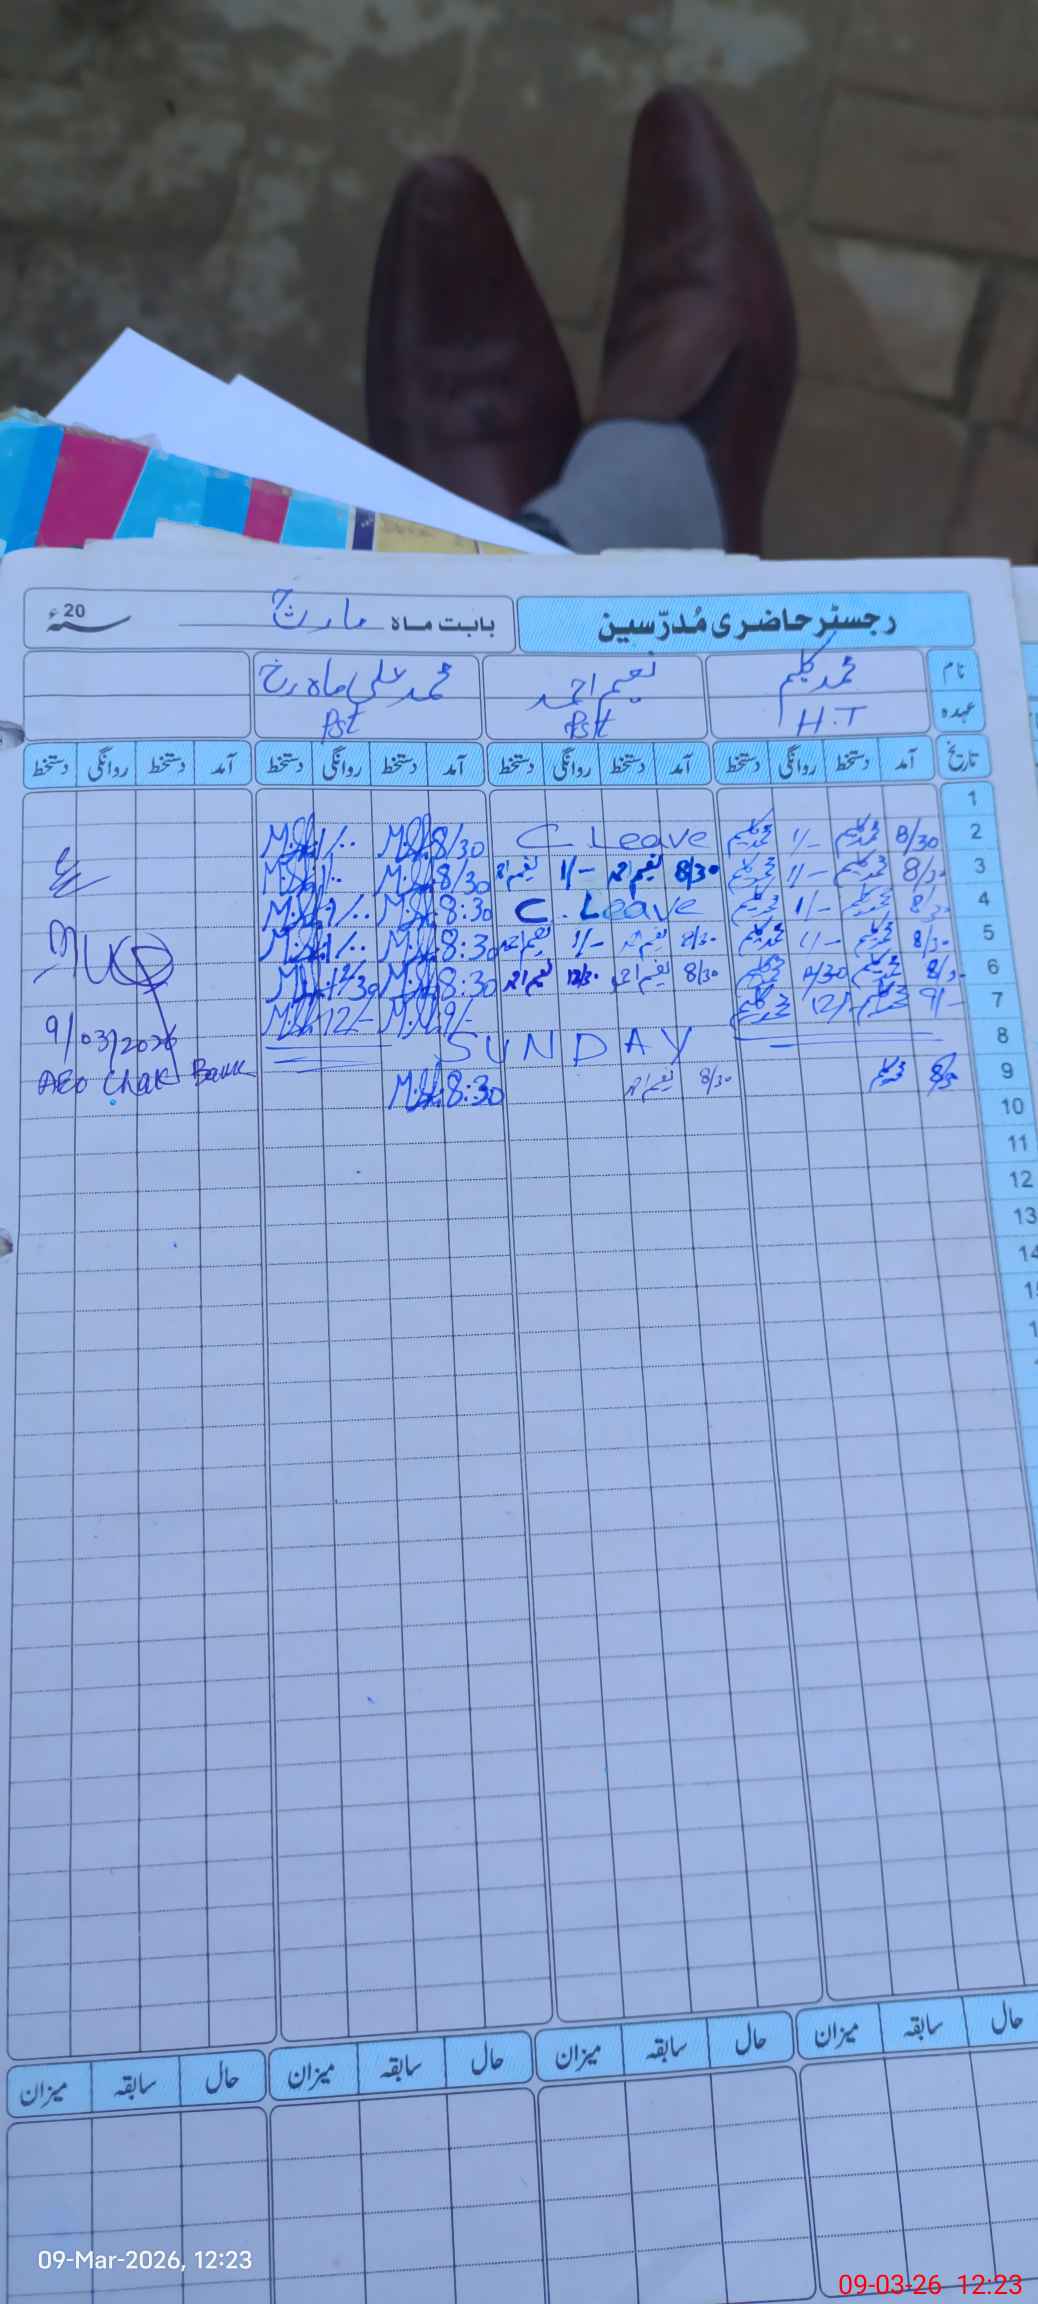 رجسٹر حاضری مُدرّسین بابت ماہ مارچ سنہ 20ء
نام محمد کلیم نعیم احمد محمد علی ماہ رخ
عہدہ H.T Pst Pst
تاریخ آمد دستخط روانگی دستخط آمد دستخط روانگی دستخط آمد دستخط روانگی دستخط آمد دستخط روانگی دستخط
1
2 8/30 محمد کلیم 1/- محمد کلیم C Leave 8/30 1/..
3 8/30 محمد کلیم 1/- محمد کلیم 8/30 نعیم احمد 1/- نعیم احمد 8/30 1/..
4 8/30 محمد کلیم 1/- محمد کلیم C. Leave 8:30 1/..
5 8/30 محمد کلیم 1/- محمد کلیم 8/30 نعیم احمد 1/- نعیم احمد 8:30 1/..
6 8/30 محمد کلیم 12/30 محمد کلیم 8/30 نعیم احمد 12/30 نعیم احمد 8:30 12/30
7 9/- محمد کلیم 12/- محمد کلیم 9/- 12/-
8 SUNDAY
9 8/30 محمد کلیم 8/30 نعیم احمد 8:30
9/03/2026
AEO Chak
10
11
12
13
14
حال سابقہ میزان حال سابقہ میزان حال سابقہ میزان حال سابقہ میزان
09-Mar-2026, 12:23
09-03-26 12:23